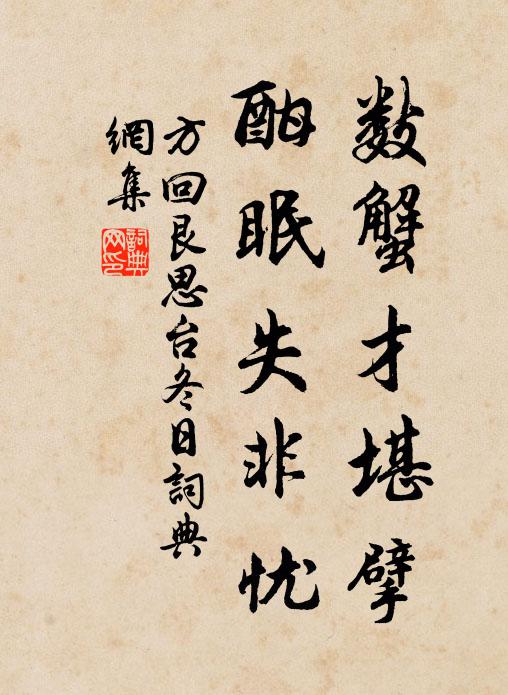 数蟹才堪擘
酣眠失非忧
方回艮思台冬日詞典
網集
詞典網印